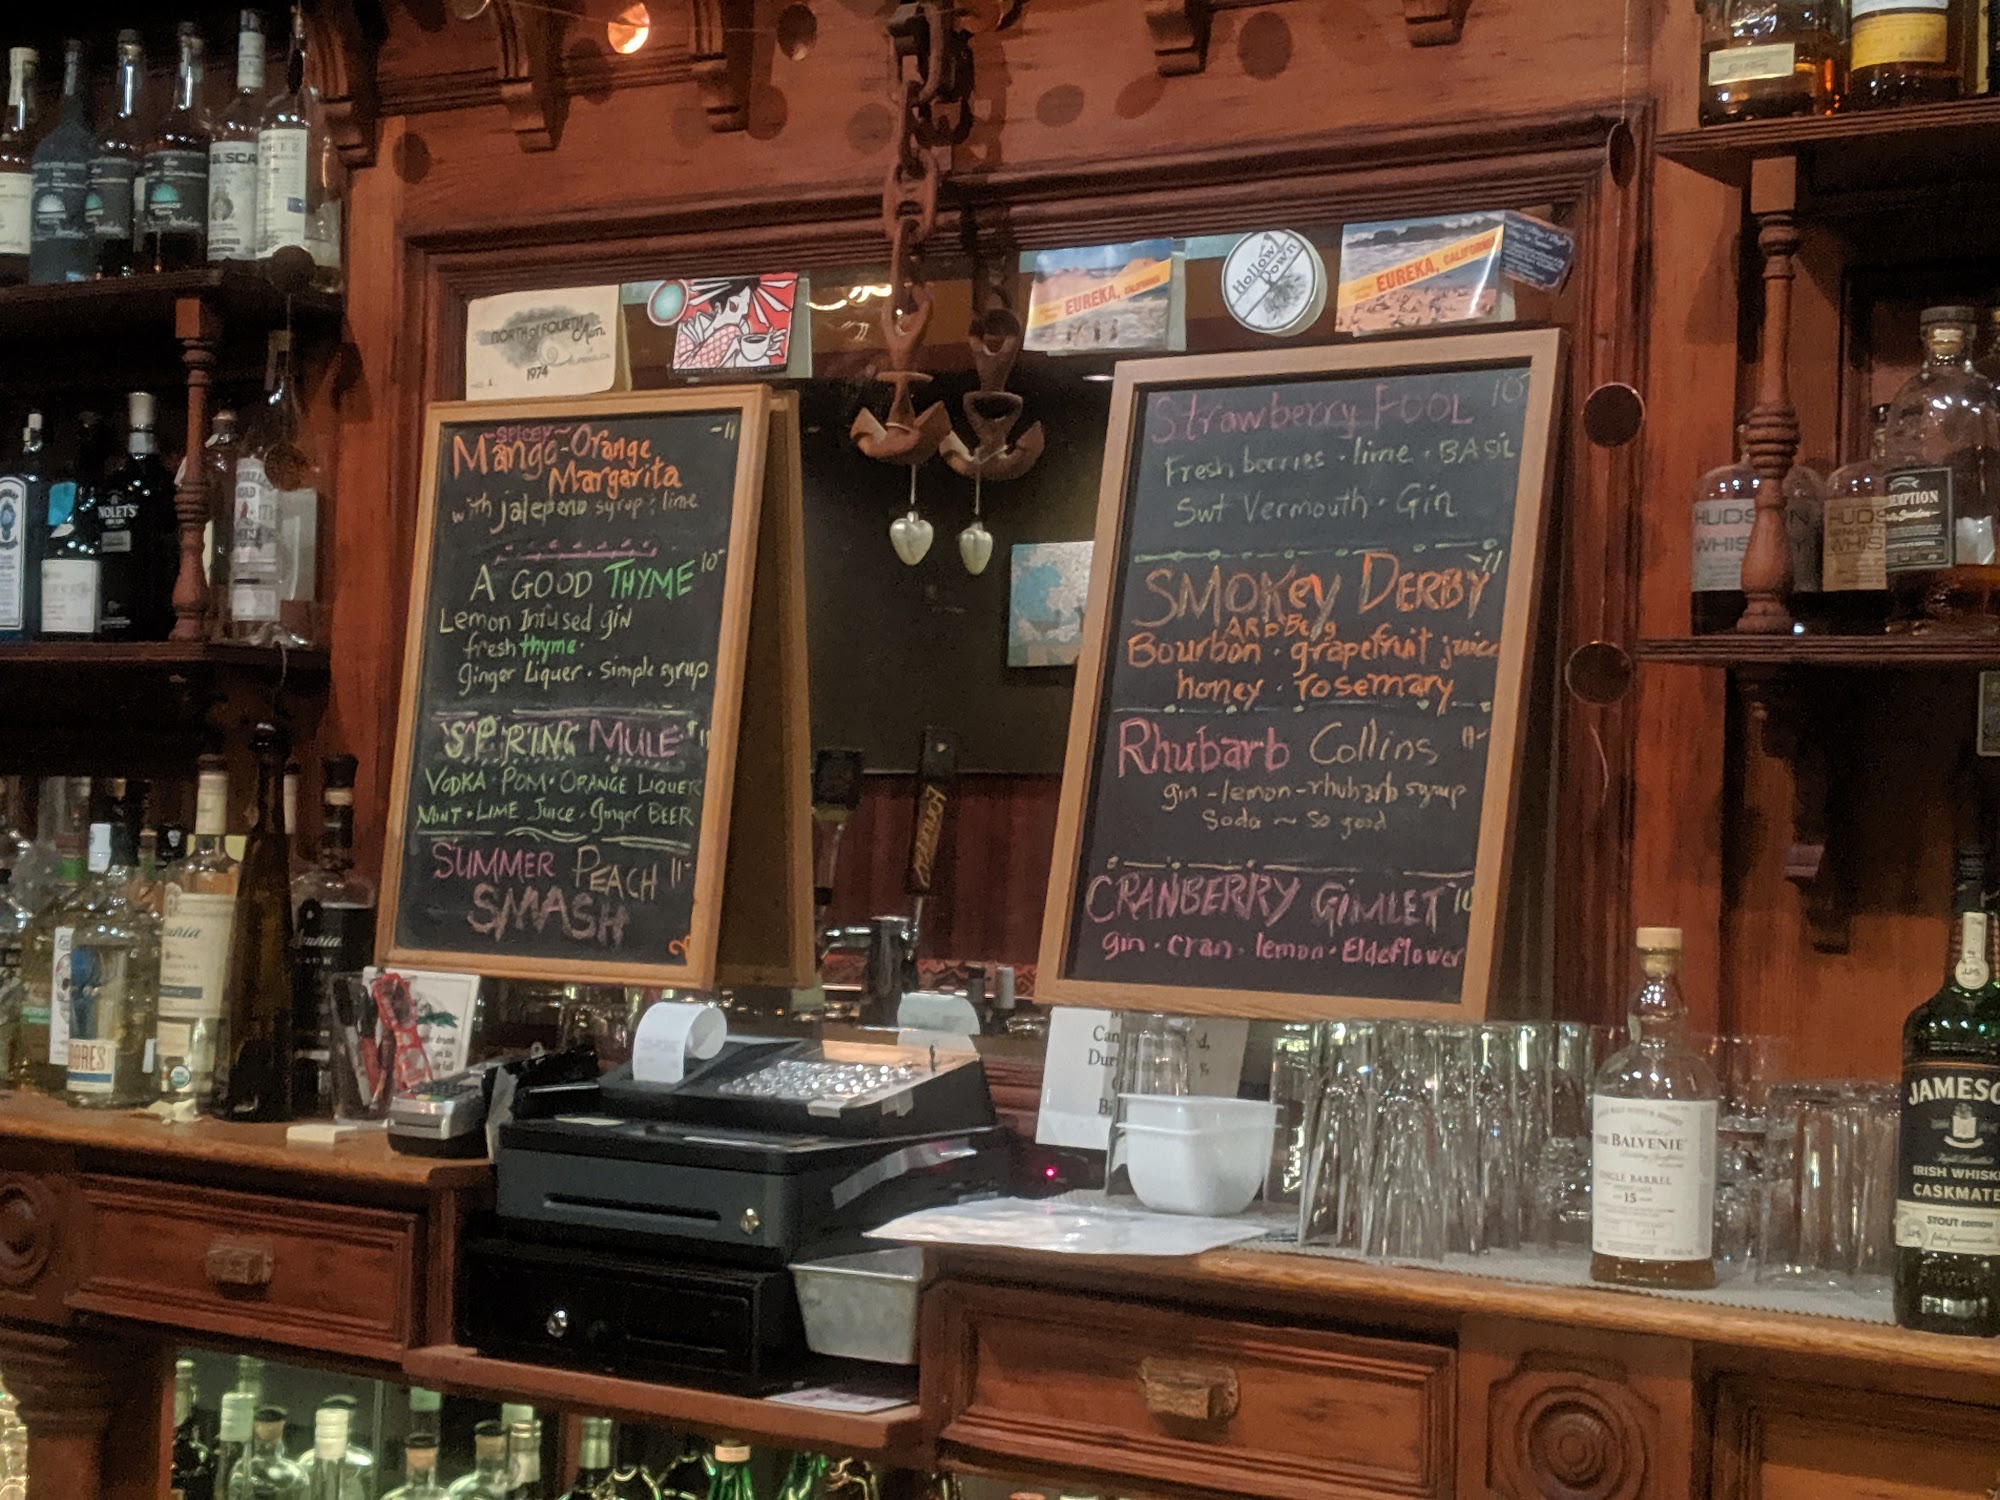 NORTH of FOURTH
1974
EUREKA, CALIFORNIA
Hollow Down
EUREKA, CALIFORNIA
~SPICEY~
Mango-Orange -11
Margarita
with jalepeno syrup : lime
A GOOD THYME 10-
Lemon Infused gin
fresh thyme.
Ginger Liquer · Simple syrup
SPRING MULE 11
VODKA · POM · ORANGE LIQUER
MINT · LIME JUICE · Ginger BEER
SUMMER PEACH 11-
SMASH
Strawberry FOOL 10-
Fresh berries · lime · BASIL
Swt Vermouth · Gin
SMOKey DERBY 11
Bourbon · grapefruit juice
honey · rosemary
Rhubarb Collins 11-
gin - lemon - rhubarb syrup
Soda ~ so good
CRANBERRY GIMLET 10
gin · cran · lemon · Eldeflower
NOLET'S
HUDSON
WHISKEY
HUDSON
WHISKEY
BALVENIE
SINGLE BARREL
15
JAMESON
IRISH WHISKEY
CASKMATES
STOUT EDITION